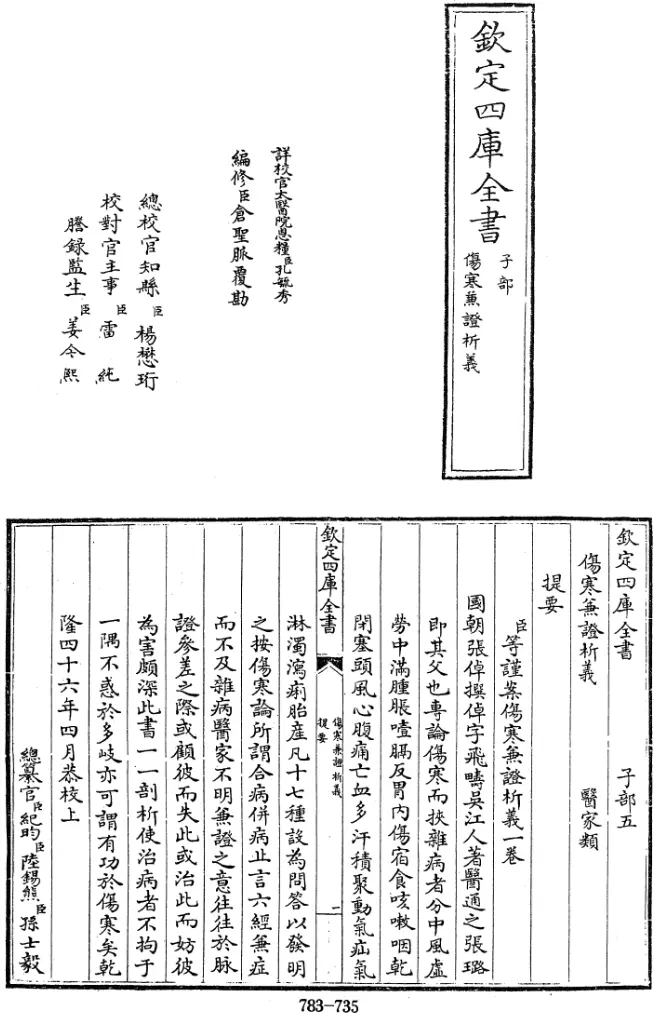 欽定四庫全書
子部
傷寒兼證析義
詳校官太醫院恩糧臣孔毓秀
編修臣倉聖脈覆勘
總校官知縣臣楊懋珩
校對官主事臣雷純
謄錄監生臣姜令熙
欽定四庫全書 子部五
傷寒兼證析義 醫家類
提要
臣等謹案傷寒兼證析義一卷
國朝張倬撰倬字飛疇吳江人著醫通之張璐
即其父也專論傷寒而挾雜病者分中風虛
勞中滿腫脹噎膈反胃内傷宿食咳嗽咽乾
閉塞頭風心腹痛亡血多汗積聚動氣疝氣
欽定四庫全書
傷寒兼證析義
提要
一
淋濁瀉痢胎產凡十七種設為問答以發明
之按傷寒論所謂合病併病止言六經兼症
而不及雜病醫家不明兼證之意往往於脈
證參差之際或顧彼而失此或治此而妨彼
為害頗深此書一一剖析使治病者不拘于
一隅不惑於多岐亦可謂有功於傷寒矣乾
隆四十六年四月恭校上
總纂官臣紀昀臣陸錫熊臣孫士毅
783-735